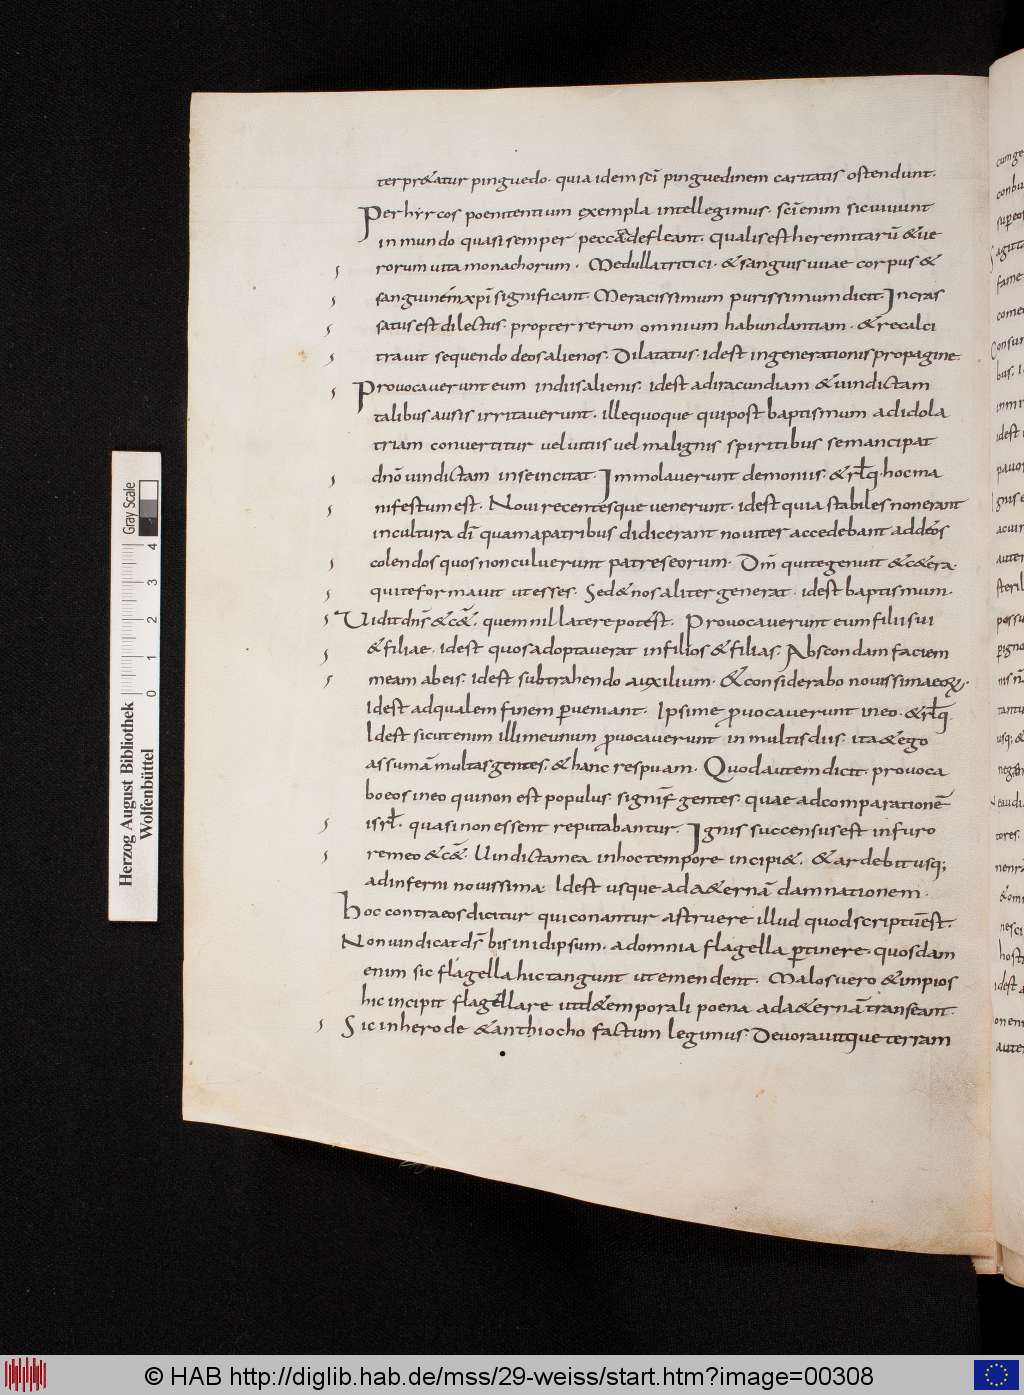 terpr&atur pinguedo. quia idem sc̄i pinguedinem caritatis ostendunt.
Per hyrcos poenitentium exempla intellegimus. sc̄i enim sic uiuunt
in mundo quasi semper peccata defleant. qualis est heremitarū & ue
rorum uita monachorum. Medulla tritici. & sanguis uuae corpus &
sanguinem xp̄i significant. Meracissimum purissimum dicit. Incras
satus est dilectus. propter rerum omnium habundantiam. & recalci
trauit sequendo deos alienos. Dilatatus. idest in generationis propagine.
Prouocauerunt eum in diis alienis. idest ad iracundiam & uindictam
talibus ausis irritauerunt. ille quoque qui post baptismum ad idola
triam conuertitur uel uitiis uel malignis spiritibus se mancipat
dn̄o uindictam in se incitat. Immolauerunt demoniis. & rł̄q. hoc ma
nifestum est. Noui recentesque uenerunt. idest quia stabiles non erant
in cultura dī quam a patribus didicerant nouiter accedebant ad deos
colendos quos non culuerunt patres eorum. Dm̄ qui te genuit & c&era.
qui te formauit ut esses. Sed & nos aliter generat. idest baptismum.
Uidit dn̄s & c&̄. quem nil latere potest. Prouocauerunt eum filii sui
& filiae. idest quos adoptauerat in filios & filias. Abscondam faciem
meam ab eis. idest subtrahendo auxilium. & considerabo nouissima eoꝝ.
Idest ad qualem finem ꝑueniant. Ipsi me ꝓuocauerunt in eo. & rł̄q.
Idest sicut enim illi me unum ꝓuocauerunt in multis diis. ita & ego
assumā multas gentes. & hanc respuam. Quod autem dicit. prouoca
bo eos in eo qui non est populus. signif̄ gentes. quae ad comparationē
isrł̄. quasi non essent reputabantur. Ignis succensus est in furo
re meo & c&̄. Uindicta mea in hoc tempore incipi&. & ardebit usq;
ad inferni nouissima. Idest usque ad a&ernā damnationem.
Hoc contra eos dicitur qui conantur astruere illud quod scriptū est.
Non uindicat ds̄ bis in idipsum. ad omnia flagella ꝑtinere. quosdam
enim sic flagella hic tangunt ut emendent. Malos uero & impios
hic incipit flagellare ut de temporali poena ad a&ernā transeant.
Sic in herode & anthiocho factum legimus. Deuorauitque terram
Herzog August Bibliothek
Wolfenbüttel
Gray Scale
0 1 2 3 4
© HAB http://diglib.hab.de/mss/29-weiss/start.htm?image=00308